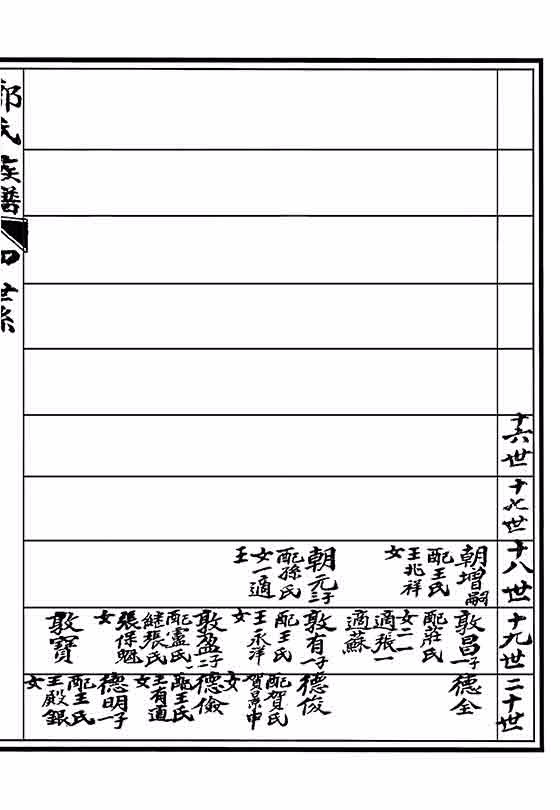 十六世
十七世
十八世
朝增嗣
配王氏
王兆祥
女
朝元三子
配孫氏
女一適
王
十九世
敦昌一子
配莊氏
女二一
適張一
適蘇
敦有一子
配王氏
王永洋
女
敦盈二子
配憲氏
繼張氏
張保魁
女
敦寶
二十世
德全
德俊
配賀氏
賀景申
女
德儉
配王氏
王有道
女
德明一子
配王氏
王殿銀
女
郭氏族譜
世系